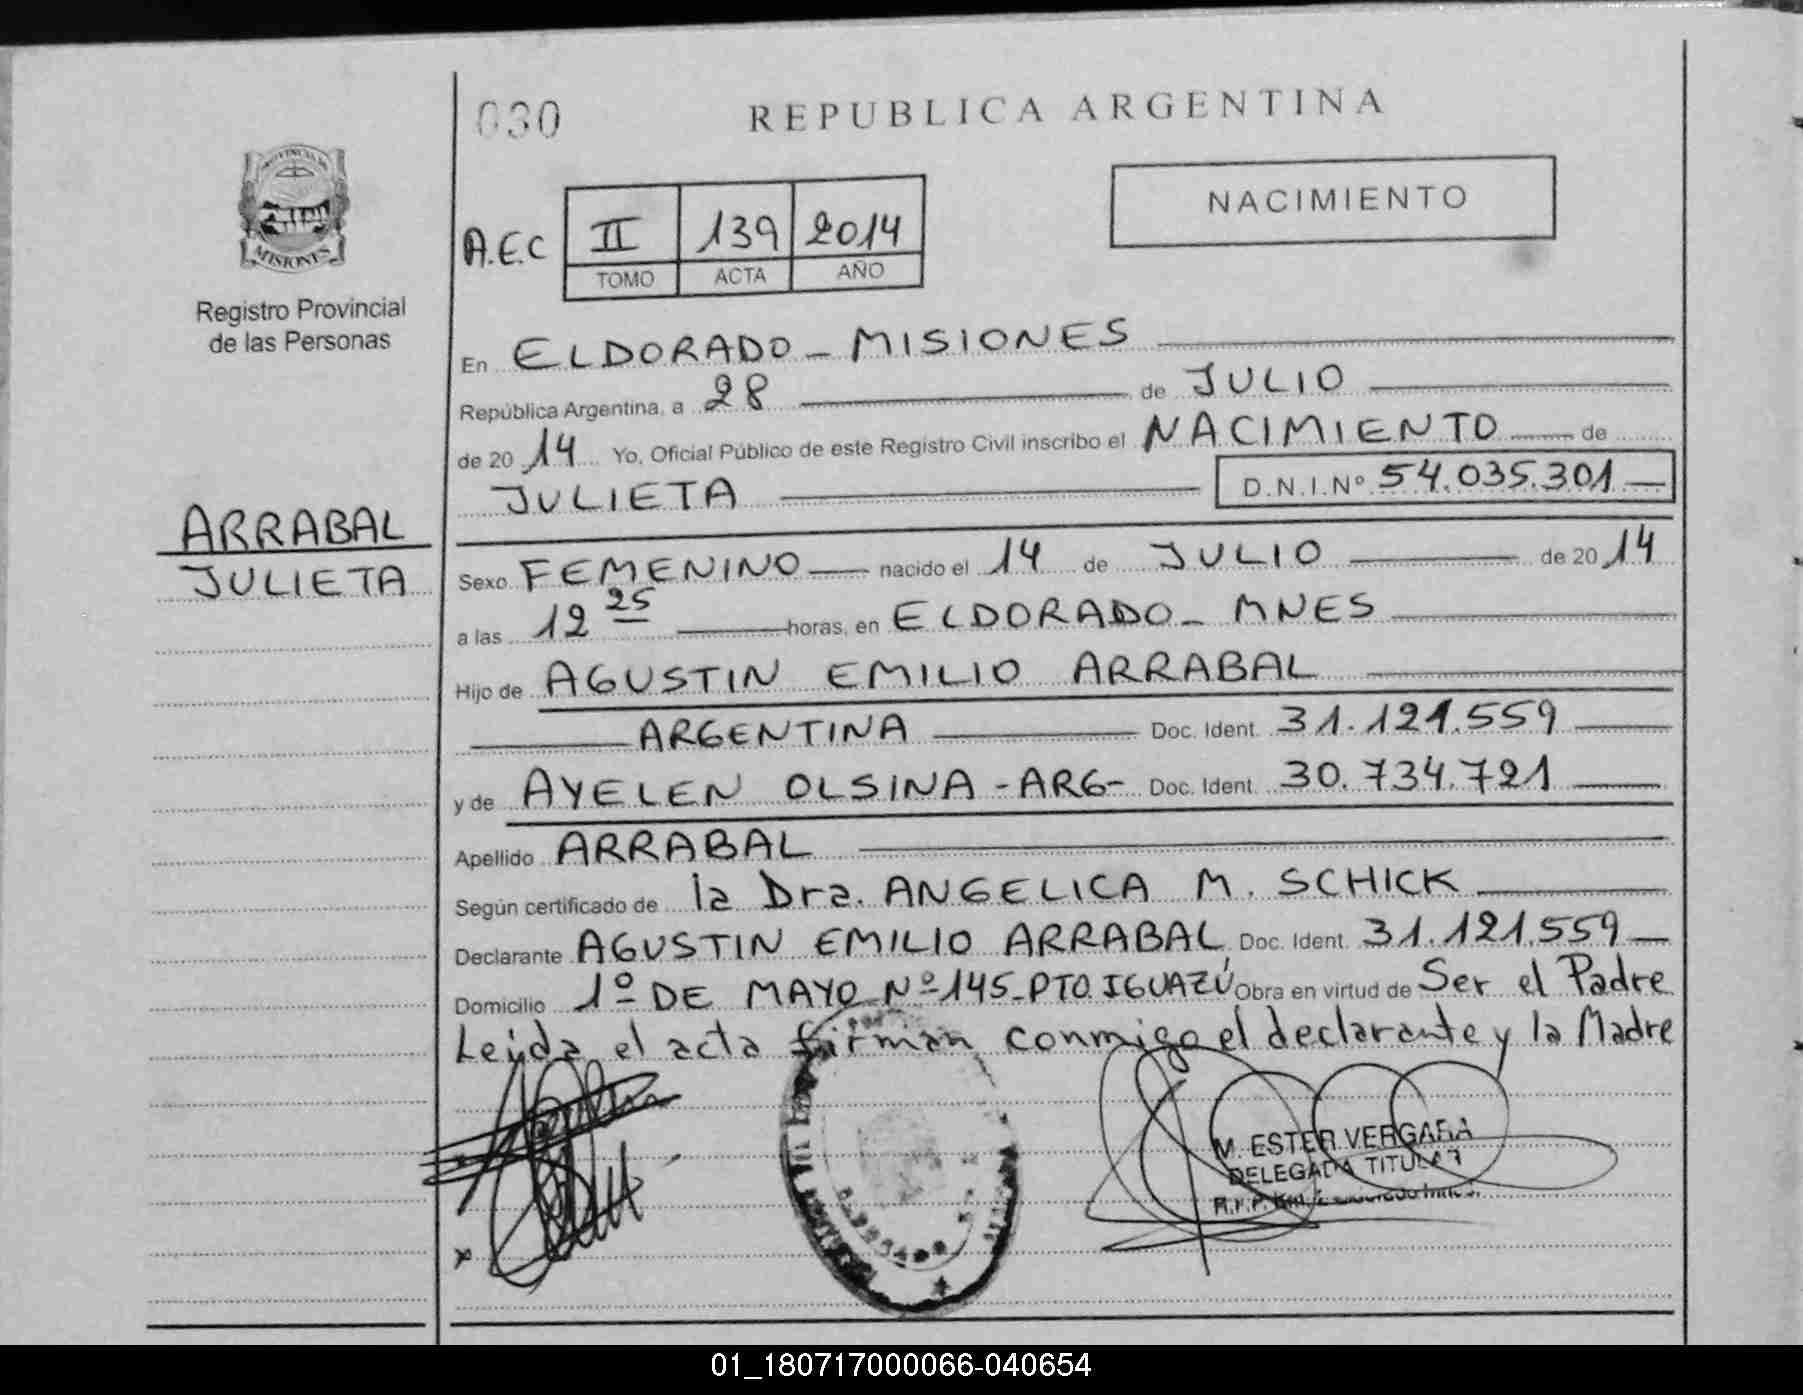 030
REPUBLICA ARGENTINA
PROVINCIA DE
MISIONES
Registro Provincial
de las Personas
A.E.C
II 139 2014
TOMO ACTA AÑO
NACIMIENTO
En ELDORADO - MISIONES
República Argentina, a 28 de JULIO
de 20 14 Yo, Oficial Público de este Registro Civil inscribo el NACIMIENTO de
JULIETA D.N.I.Nº 54.035.301
ARRABAL
JULIETA
Sexo FEMENINO nacido el 14 de JULIO de 20 14
a las 12 25 horas, en ELDORADO - MNES
Hijo de AGUSTIN EMILIO ARRABAL
ARGENTINA Doc. Ident. 31.121.559
y de AYELEN OLSINA - ARG - Doc. Ident. 30.734.721
Apellido ARRABAL
Según certificado de la Dra. ANGELICA M. SCHICK
Declarante AGUSTIN EMILIO ARRABAL Doc. Ident. 31.121.559
Domicilio 1º DE MAYO Nº 145 - PTO. IGUAZÚ Obra en virtud de Ser el Padre
Leída el acta firman conmigo el declarante y la Madre
M. ESTER VERGARA
DELEGADA TITULAR
01_180717000066-040654